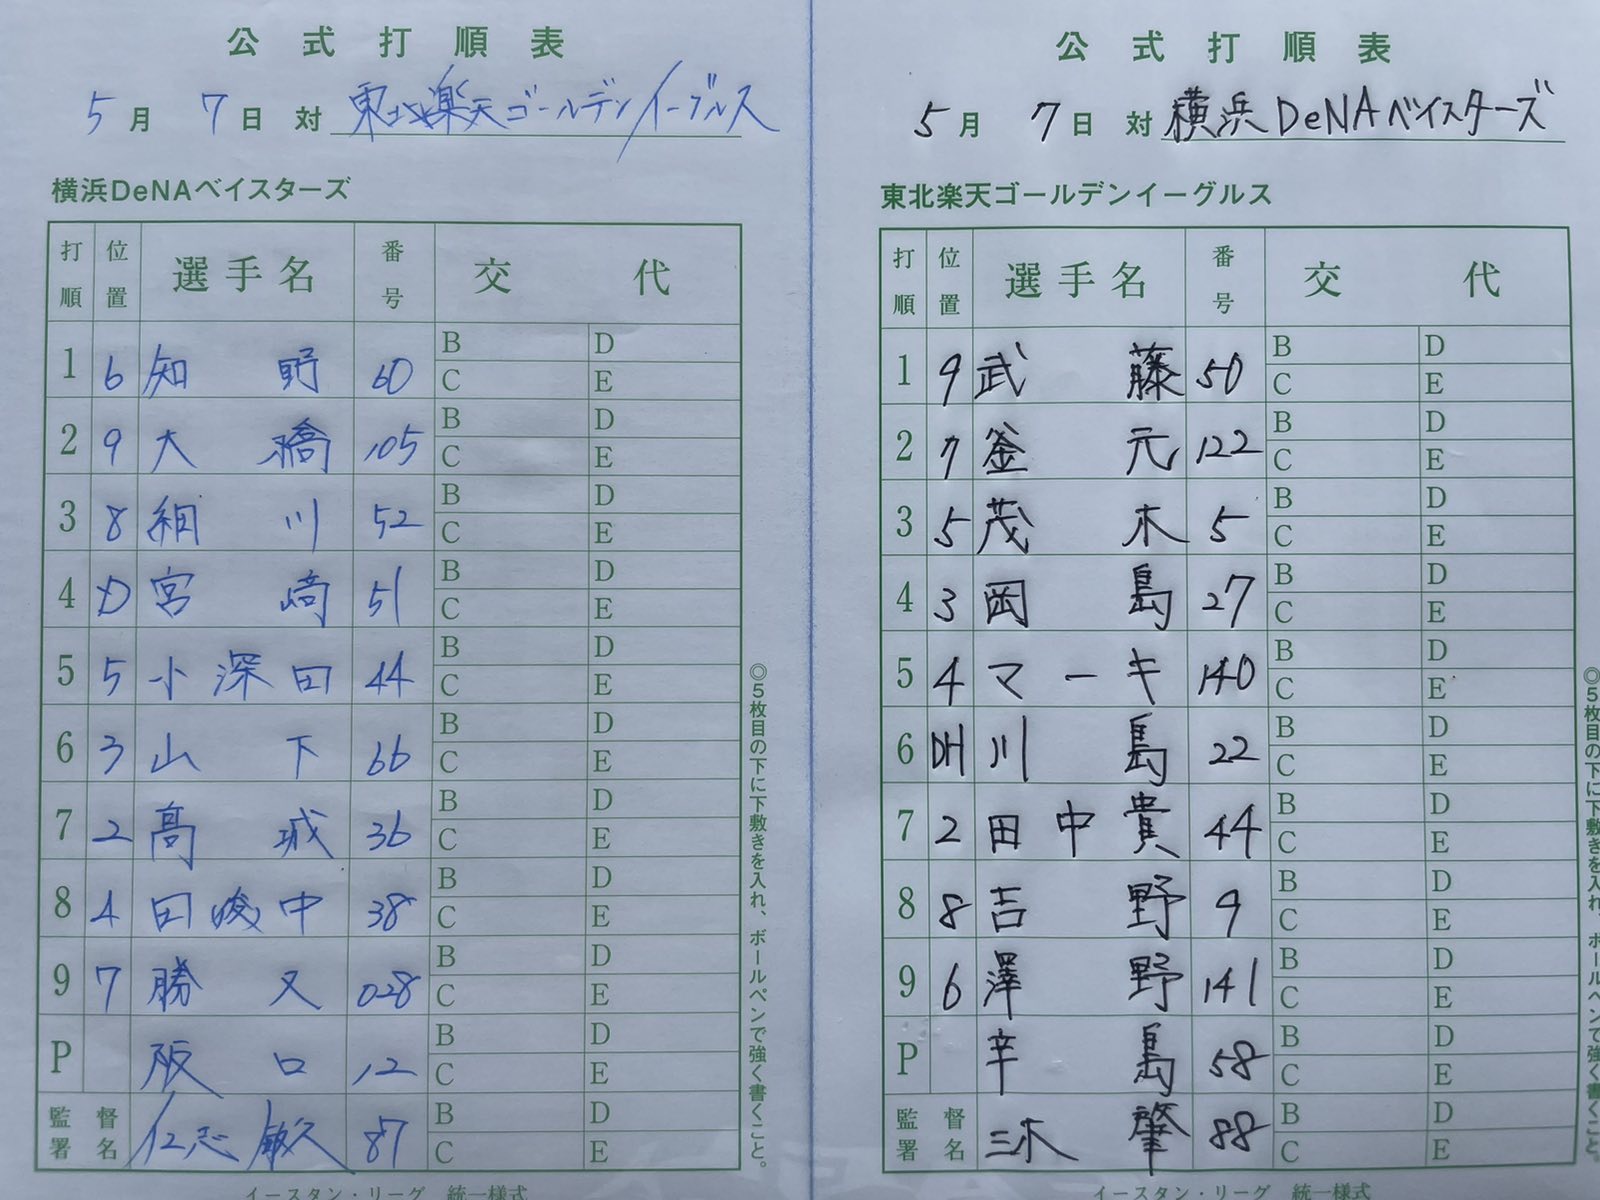 公式打順表
5月 7日 対 東北楽天ゴールデンイーグルス
横浜DeNAベイスターズ
打順 位置 選手名 番号 交代
1 6 知野 60 B D
C E
2 9 大橋 105 B D
C E
3 8 相川 52 B D
C E
4 D 宮﨑 51 B D
C E
5 5 小深田 44 B D
C E
6 3 山下 66 B D
C E
7 2 髙城 36 B D
C E
8 4 田中俊 38 B D
C E
9 7 勝又 028 B D
C E
P 阪口 12 B D
C E
監督署名 仁志敏久 87 B D
C E
◎5枚目の下に下敷きを入れ、ボールペンで強く書くこと。
イースタン・リーグ 統一様式
公式打順表
5月 7日 対 横浜DeNAベイスターズ
東北楽天ゴールデンイーグルス
打順 位置 選手名 番号 交代
1 9 武藤 50 B D
C E
2 7 釜元 122 B D
C E
3 5 茂木 5 B D
C E
4 3 岡島 27 B D
C E
5 4 マーキ 140 B D
C E
6 DH 川島 22 B D
C E
7 2 田中貴 44 B D
C E
8 8 吉野 9 B D
C E
9 6 澤野 141 B D
C E
P 辛島 58 B D
C E
監督署名 三木肇 88 B D
C E
◎5枚目の下に下敷きを入れ、ボールペンで強く書くこと。
イースタン・リーグ 統一様式